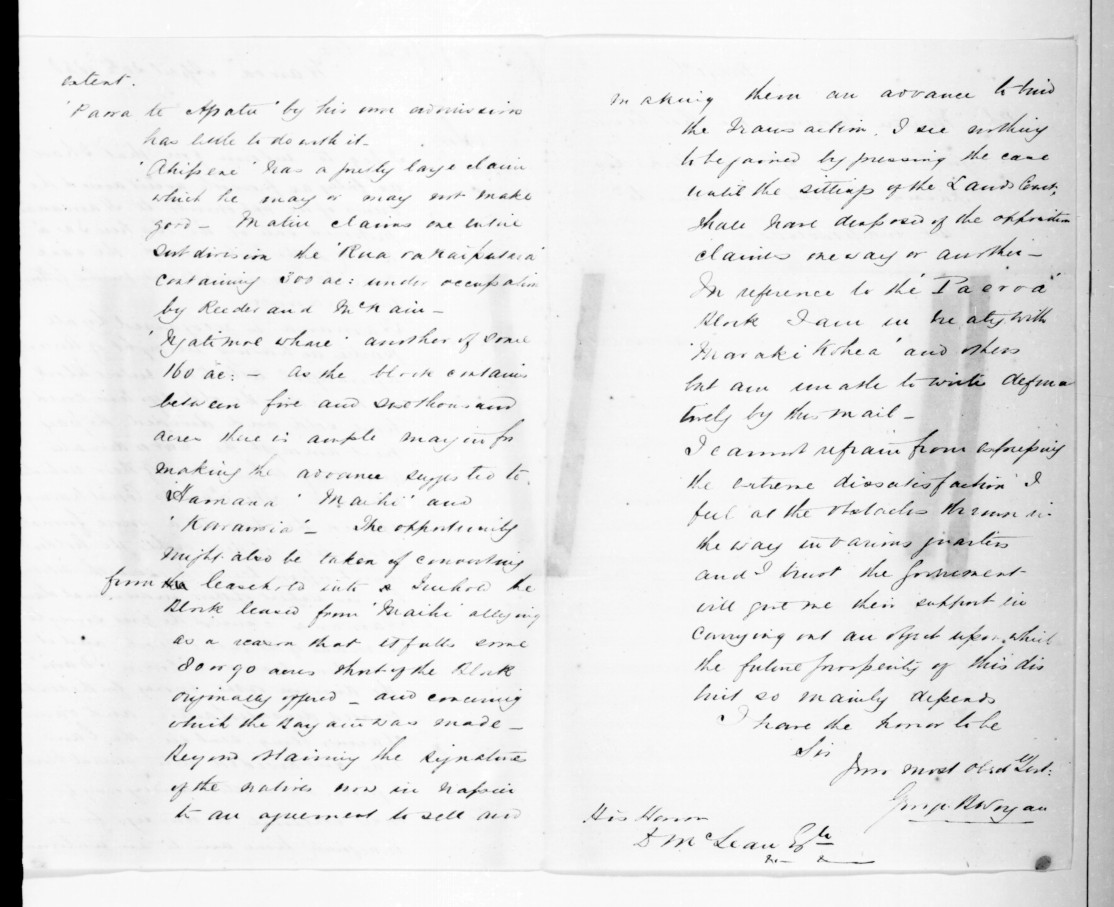 extent.
'Paora te Apatu' by his own admission
has little to do with it -
'Ahipene' has a pretty large claim
which he may or may not make
good - Maihi claims one entire
subdivision the
containing 300 ac: under occupation
by Reeder and McKain -
another of some
160 ac: - As the block contains
between five and six thousand
acres there is ample margin for
making the advance suggested to
'Hamana' 'Maihi' and
'Karauria' - The opportunity
might also be taken of converting
from leasehold into freehold the
Block leased from 'Maihi' alleging
as a reason that it falls some
80 or 90 acres short of the Block
originally offered - and concerning
which the bargain was made -
Beyond obtaining the signatures
of the natives now in Napier
to an agreement to sell and
making them an advance to bind
the transaction. I see nothing
to be gained by pressing the case
until the sittings of the Lands Court,
shall have disposed of the opposition
claims one way or another -
In reference to the 'Paeroa'
Block I am in treaty with
'Maraki Kohea' and others
but am unable to write defini
tively by this mail -
I cannot refrain from expressing
the extreme dissatisfaction I
feel at the obstacles thrown in
the way in various quarters
and I trust the Government
will give me their support in
carrying out an object upon which
the future prosperity of this dis
trict so mainly depends
I have the honor to be
Sir
Your most obedt Servt:
George B Worgan
His Honor
D McLean Esqre